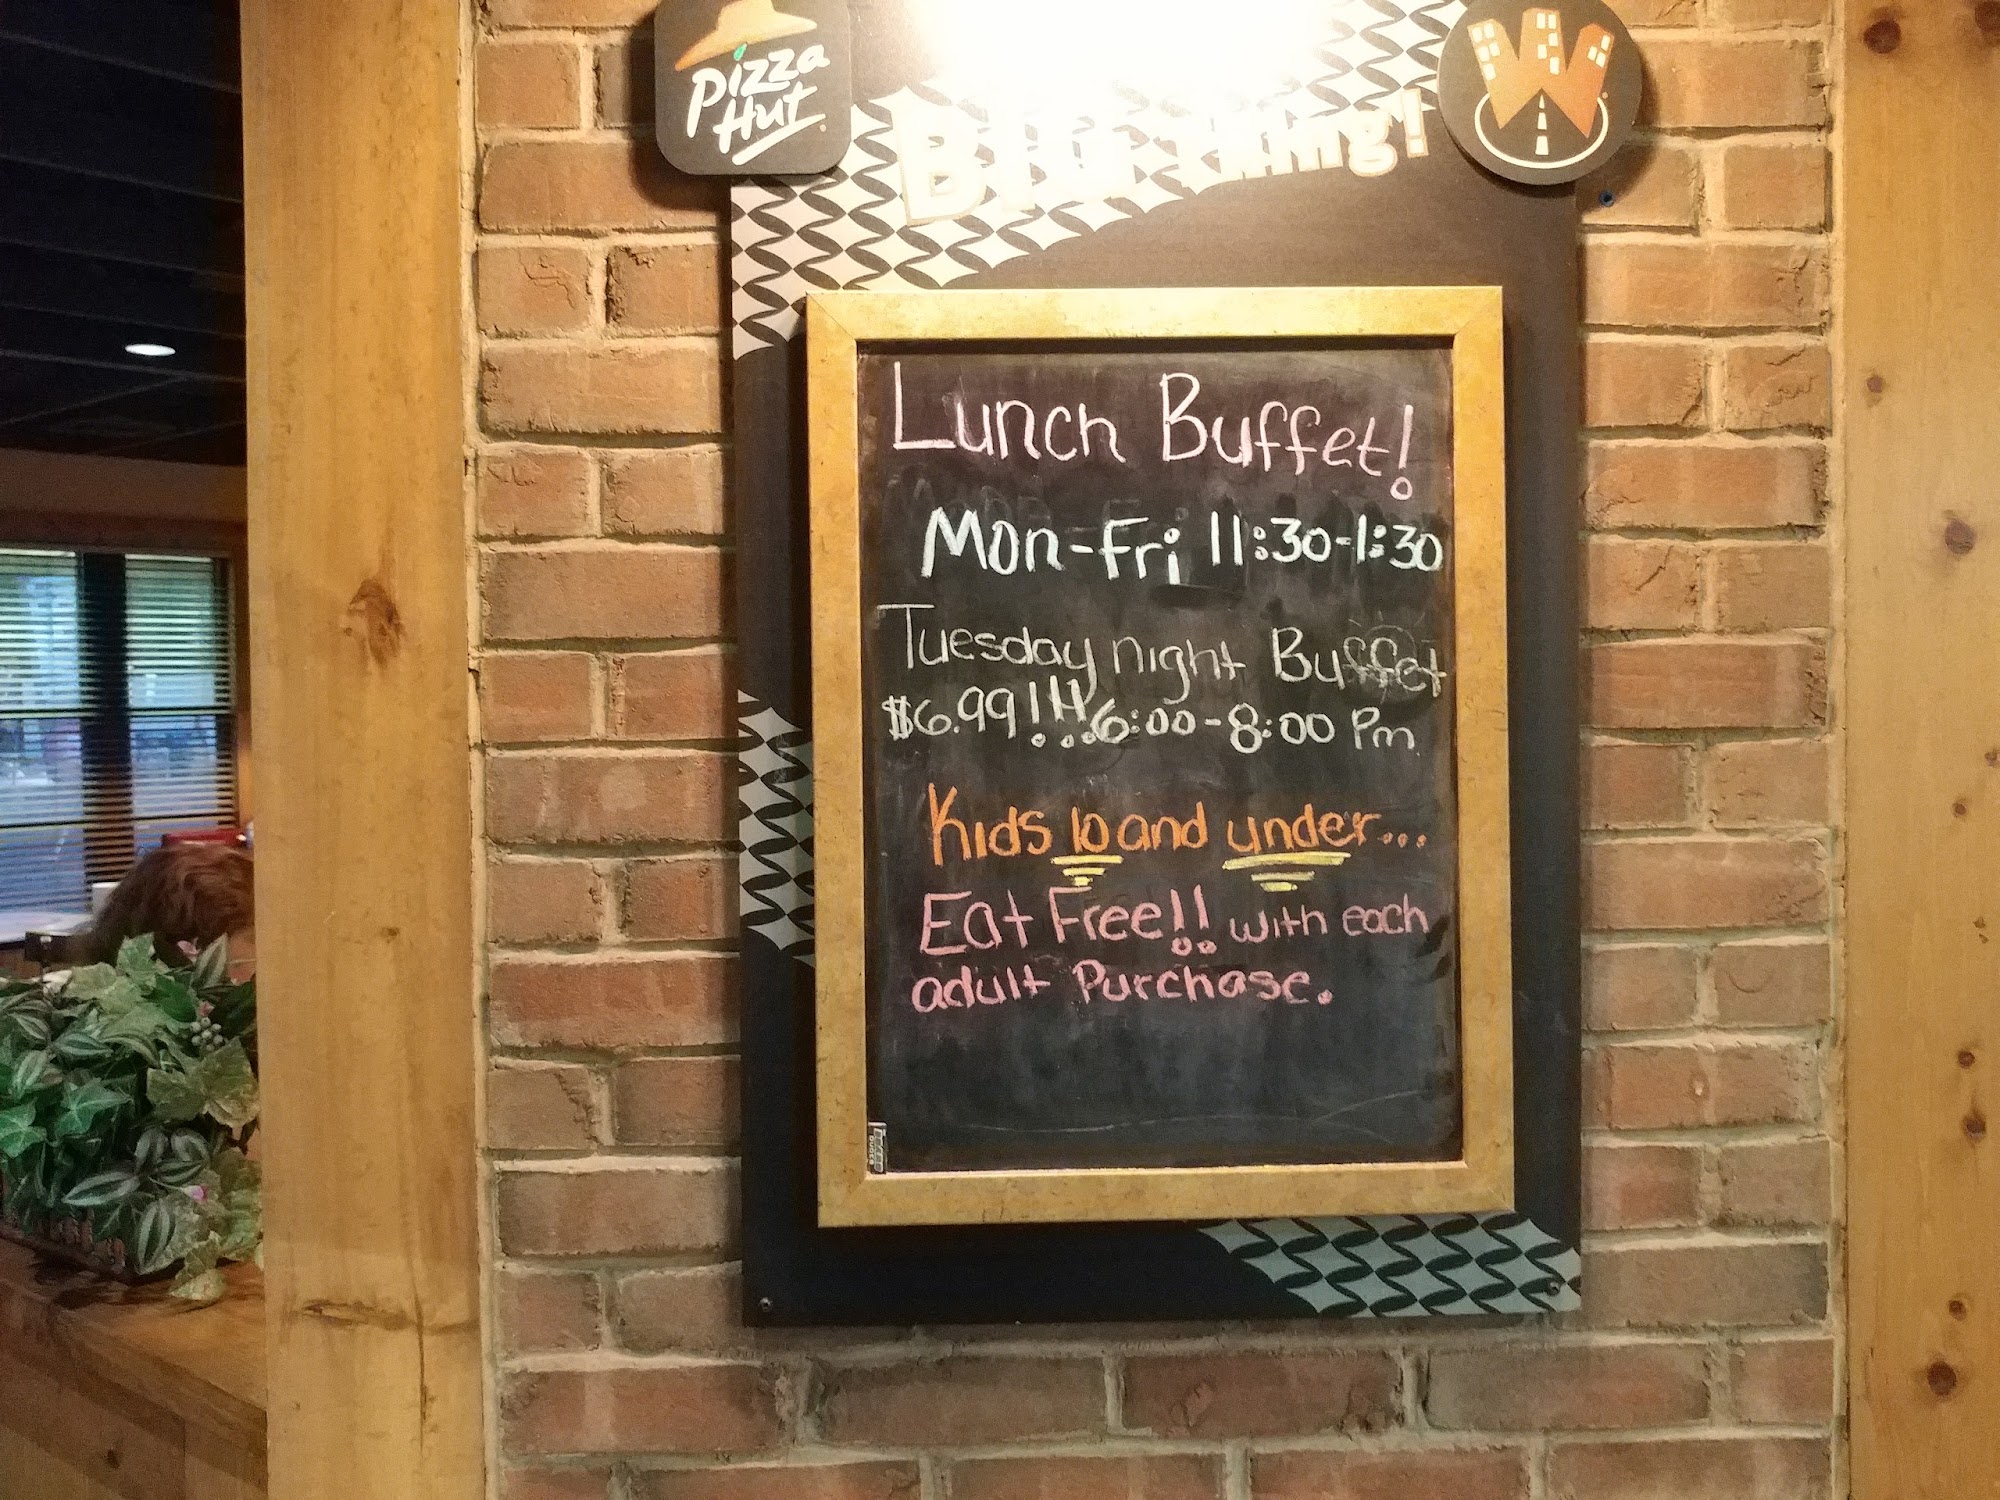 Pizza
Hut
W
Lunch Buffet!
Mon-Fri 11:30-1:30
Tuesday night Buffet
$6.99!!! 6:00-8:00 Pm
Kids 10 and under...
Eat Free!! with each
adult Purchase.